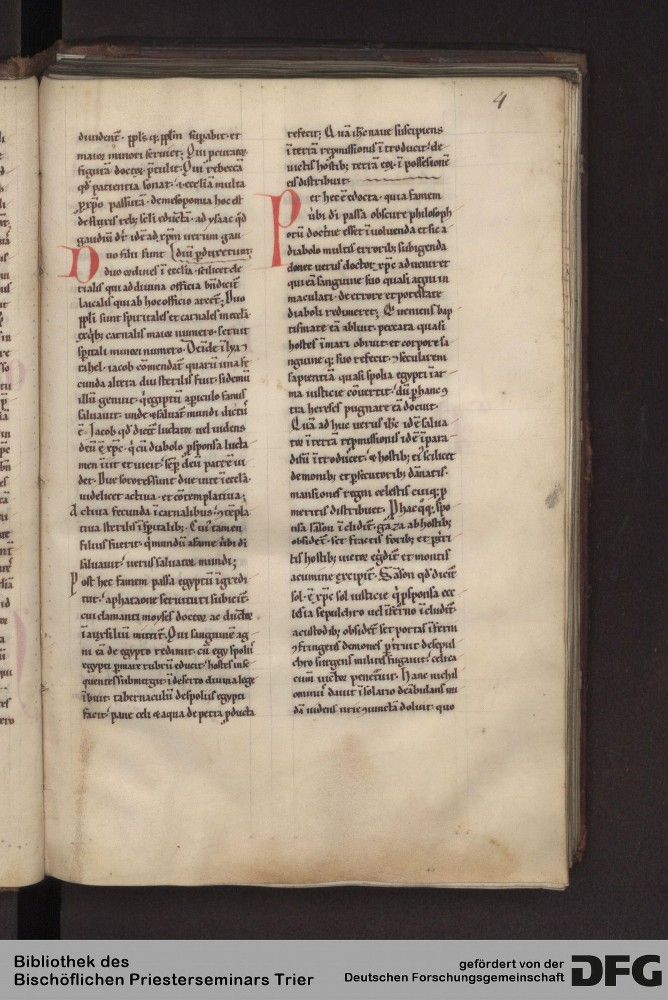 4
diuident᷑. ppl̄s. q; ppl̄m supabit. et
maior minori seruiet; Qui peturarū
figurā doctoꝝ p̄tulit. Qui rebecca
qd̄ patientia sonat. i. eccl̄iam multa
ꝓ xp̄o passurā. de mesopotamia hoc est
gaudiū dr̄. idē ad xp̄m uerum gau
Duo filii sunt diū ꝑduxerunt;
duo ordines i eccl̄ia. scilicet cle
ricalis qui ad diuina officia
laicalis qui ab hoc officio arcet᷑; Duo
ppl̄i sunt spiritales et carnales in eccl̄a
carnalis maior numero. seruit
sp̄itali minori numero. Deinde
rahel. iacob quarū una fe
cunda altera diu sterilis fuit. sed
illū genuit. q̇ egiptū a ꝑiculo famis
saluauit. unde saluator mundi dictus
ē. Iacob qd̄ dicit᷑ luctator uel uidens
deū ē xp̄c. q̇ cū diabolo ꝓ sponsa lucta
men iiit et uicit. semp̄ deū patrē ui
det. Due sorores sunt due uite i eccl̄a.
uidelicet actiua. et cōtemplatiua;
Actiua fecunda i carnalibus. ꝯtēpla
tiua sterilis i sp̄italib; Cui tamen
filius fuerit. q̇ mundū a fame ūbi dī
saluauit. uerus saluator mundi;
Post hec famem passa egyptū igredi
tur. a pharaone seruituti subicit᷑.
cui clamanti moyses doctor ac ductor
i auxiliū mittit᷑. Qui sanguine ag
ni eā de egypto redimit. cū egyspoliis
egypti ꝑ mare rubrū educit. hostes inse
quentes submergit. i deserto diuina lege
ibuit. tabernaculū de spoliis egypti
facit. pane celi & aqua de petra ꝓducta
refecit; Quā ihc̄ naue suscipiens
i terrā repmissionis itroducit. de
uictis hostib; terrā eoꝝ i possessionē
eis distribuit.
Per hec ē edocta. quia famem
ūbi dī passa obscure philosoph
orū doctrine esset iuoluenda et sic a
diabolo multis errorib; subigenda
donec uerus doctor xp̄c adueniret
qui eā sanguine suo quasi agni in
maculati. de errore et potestate
diaboli redimeret; Quem in bap
tismate eā abluit. peccata quasi
hostes i mari obruit. et corpore sa
nguine q; suo refecit. ꝯ secularem
sapientiā quasi spolia egypti i ar
ma iusticie cōuertit. dū ꝑ hanc ꝯ
tra hereses pugnare eā docuit.
Quā adhuc uerus ihc̄ idē salua
tor i terrā repmissionis idē i para
disū itroducet. & hostib; ei scilicet
demonib; et ꝑsecutorib; dānatis.
mansiones regni celestis cuiq; ꝓ
meritis distribuet. Ꝑ hac q̇q; spo
nsa sāson i cludit᷑. gaza ab hostib;
obsidet᷑. set fractis forib; et p̄tri
tis hostib; uictor eg̓dit᷑ et montis
acumine excipit᷑. Sāson qd̄ dicit᷑
sol. ē xp̄c sol iusticie q̇ ꝓ sponsa ecc
l̄esia sepulchro uel iferno icludit᷑
a custodib; obsidet᷑. set portas iferni
ꝯfringens demones ꝑtruit. de sepul
chro surgens milites fugauit. celi ca
cum uictor penetrauit. Hanc nichil
ominus dauit i solario deābulans nu
dā uidens urie ꝯiunctā doluit. quo
Bibliothek des
Bischöflichen Priesterseminars Trier
gefördert von der
Deutschen Forschungsgemeinschaft
DFG